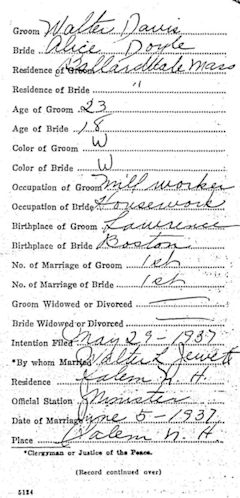 Groom Walter Davis
Bride Alice Doyle
Residence of Groom Ballardvale Mass
Residence of Bride "
Age of Groom 23
Age of Bride 18
Color of Groom W
Color of Bride W
Occupation of Groom Mill worker
Occupation of Bride Housework
Birthplace of Groom Lawrence
Birthplace of Bride Boston
No. of Marriage of Groom 1st
No. of Marriage of Bride 1st
Groom Widowed or Divorced —
Bride Widowed or Divorced —
Intention Filed May 29-1937
*By whom Married Walter L Jewett
Residence Salem N. H.
Official Station Minister
Date of Marriage June 5-1937
Place Salem N. H.
*Clergyman or Justice of the Peace.
(Record continued over)
5124